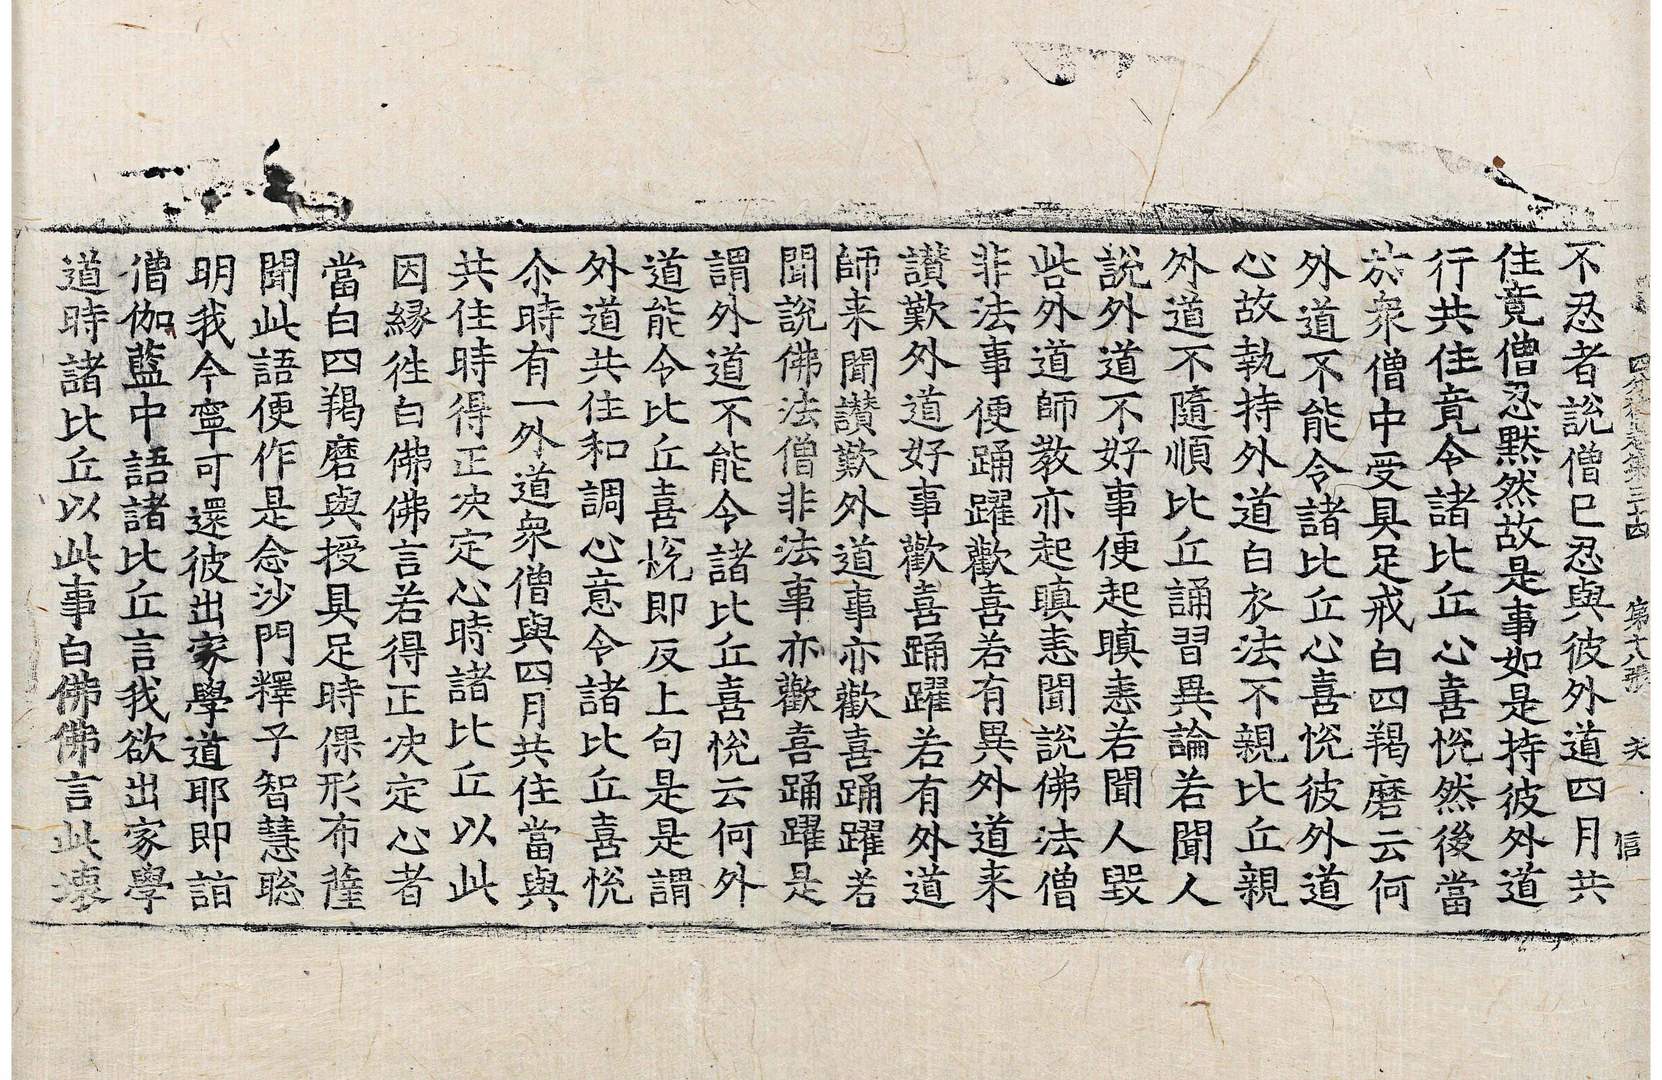 四分律卷第三十四 第十八張 夫 信
不忍者說僧已忍與彼外道四月共
住竟僧忍默然故是事如是持彼外道
行共住竟令諸比丘心喜悅然後當
於衆僧中受具足戒白四羯磨云何
外道不能令諸比丘心喜悅彼外道
心故執持外道白衣法不親比丘親
外道不隨順比丘誦習異論若聞人
說外道不好事便起瞋恚若聞人毀
呰外道師教亦起瞋恚聞說佛法僧
非法事便踊躍歡喜若有異外道来
讃歎外道好事歡喜踊躍若有外道
師来聞讃歎外道事亦歡喜踊躍若
聞說佛法僧非法事亦歡喜踊躍是
謂外道不能令諸比丘喜悅云何外
道能令比丘喜悅即反上句是是謂
外道共住和調心意令諸比丘喜悅
尒時有一外道衆僧與四月共住當與
共住時得正决定心時諸比丘以此
因縁徃白佛佛言若得正决定心者
當白四羯磨與授具足時倮形布薩
聞此語便作是念沙門釋子智慧聡
明我今寧可還彼出家學道耶即詣
僧伽藍中語諸比丘言我欲出家學
道時諸比丘以此事白佛佛言此壞